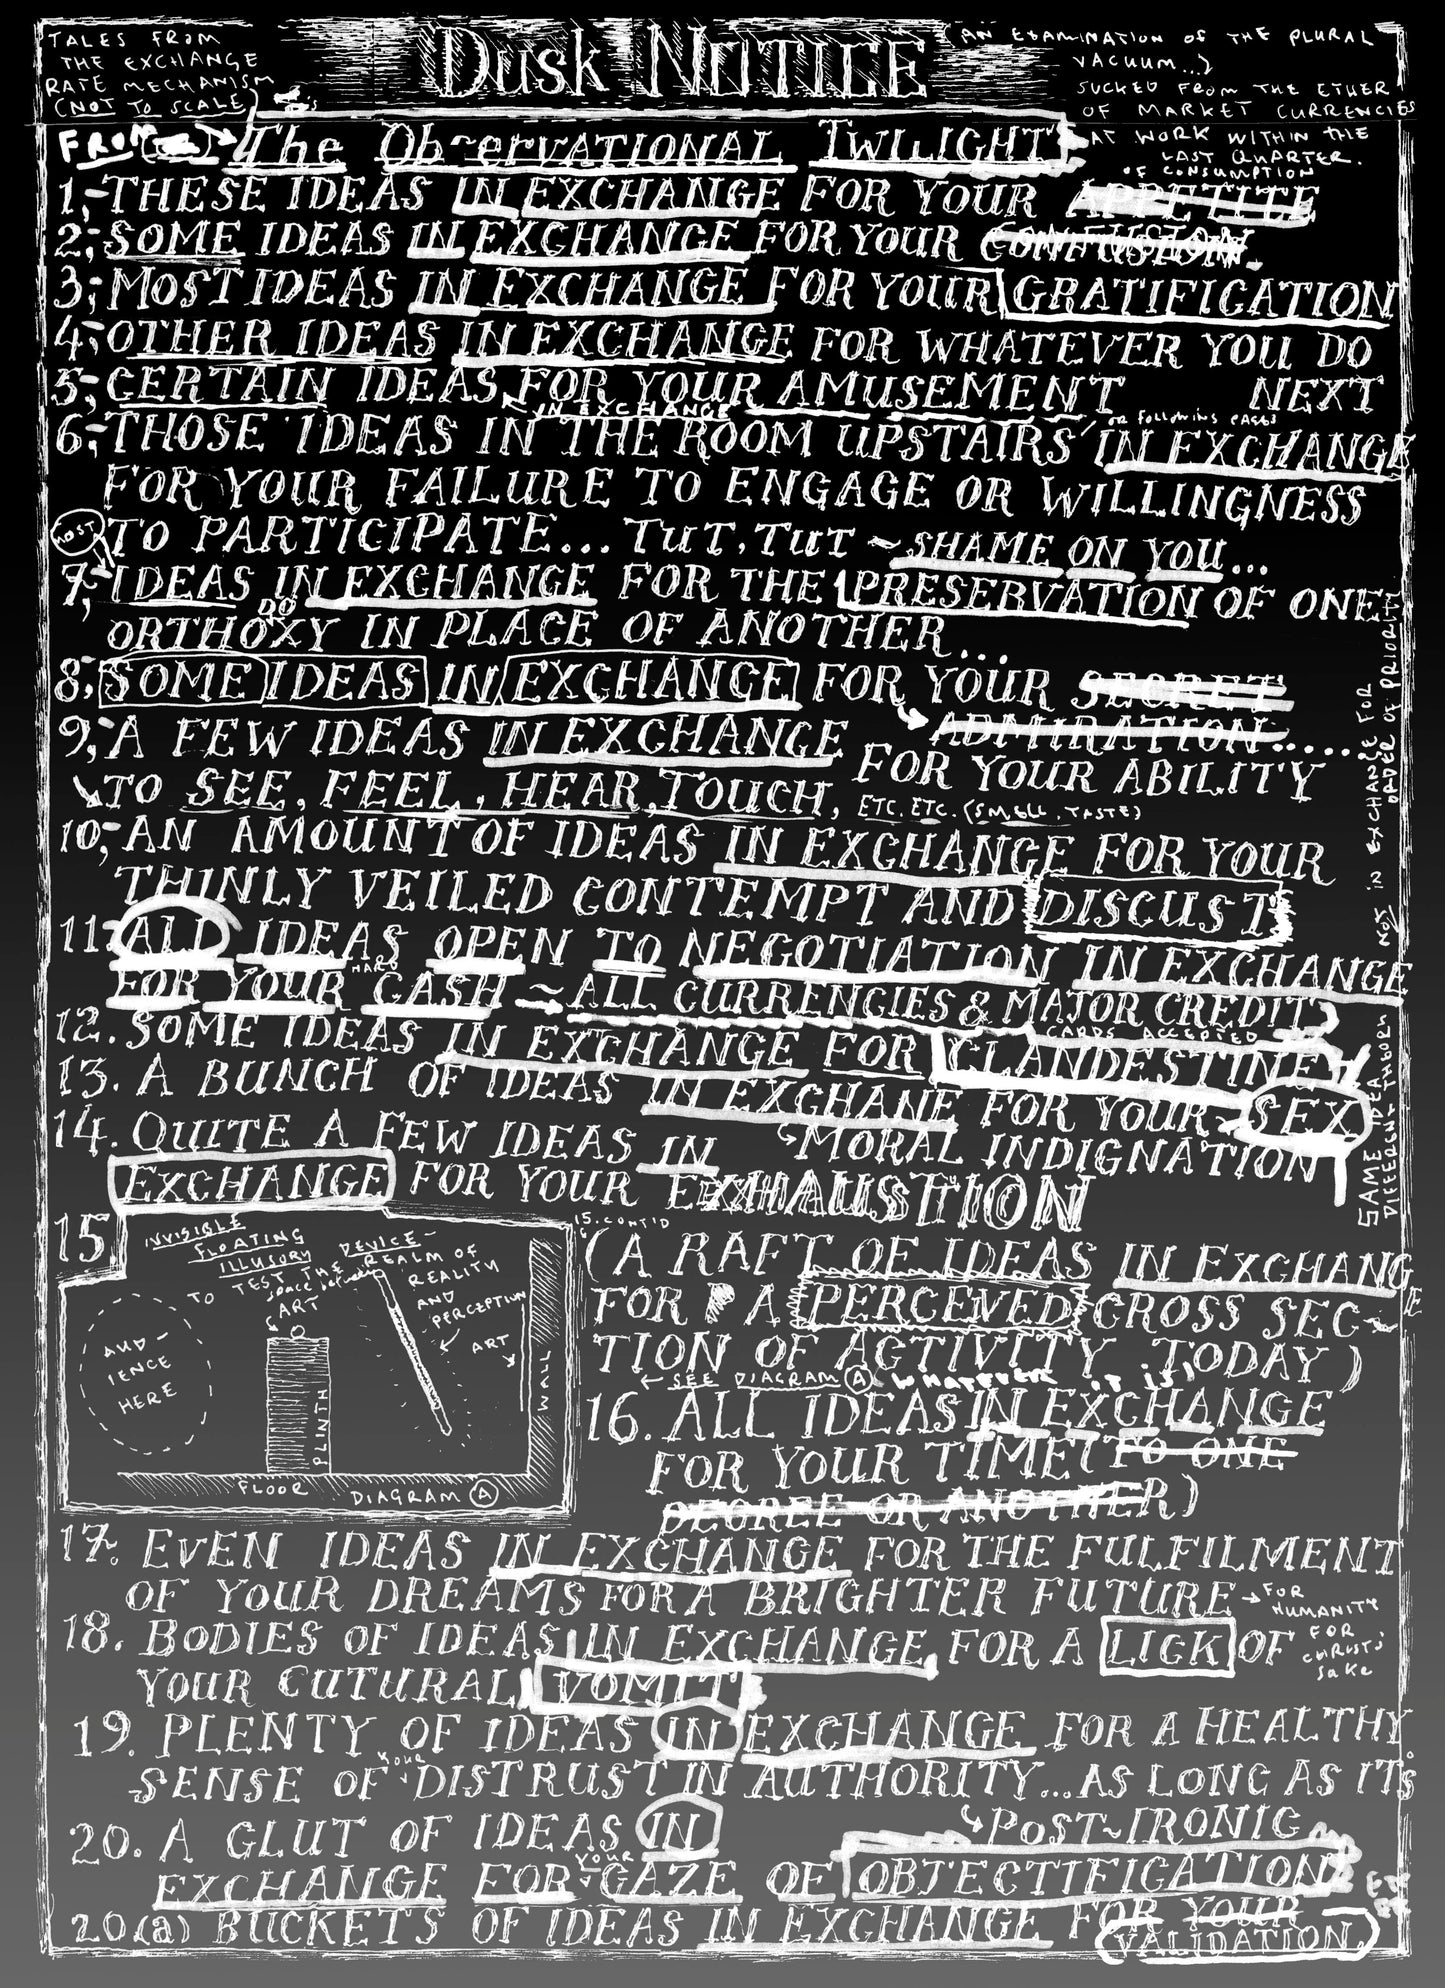 TALES FROM
THE EXCHANGE
RATE MECHANISM
(NOT TO SCALE)
Dusk NOTICE
(AN EXAMINATION OF THE PLURAL
VACUUM...)
SUCKED FROM THE ETHER
OF MARKET CURRENCIES
AT WORK WITHIN THE
LAST QUARTER.
OF CONSUMPTION
FROM The Ob~ervATIONAL TWILIGHT
1,- THESE IDEAS IN EXCHANGE FOR YOUR APPETITE
2; SOME IDEAS IN EXCHANGE FOR YOUR CONFUSION.
3; MOST IDEAS IN EXCHANGE FOR YOUR GRATIFICATION
4; OTHER IDEAS IN EXCHANGE FOR WHATEVER YOU DO
NEXT
5; CERTAIN IDEAS FOR YOUR AMUSEMENT
IN EXCHANGE
OR FOLLOWING PAGES
6; THOSE IDEAS IN THE ROOM UPSTAIRS IN EXCHANGE
FOR YOUR FAILURE TO ENGAGE OR WILLINGNESS
TO PARTICIPATE... TUT, TUT ~ SHAME ON YOU...
MOST
7; IDEAS IN EXCHANGE FOR THE PRESERVATION OF ONE
DO
ORTHOXY IN PLACE OF ANOTHER...
8; SOME IDEAS IN EXCHANGE FOR YOUR SECRET
ADMIRATION.....
9; A FEW IDEAS IN EXCHANGE FOR YOUR ABILITY
TO SEE, FEEL, HEAR, TOUCH, ETC. ETC. (SMELL, TASTE)
10; AN AMOUNT OF IDEAS IN EXCHANGE FOR YOUR
THINLY VEILED CONTEMPT AND DISCUST
11. ALL IDEAS OPEN TO NEGOTIATION IN EXCHANGE
HARD
FOR YOUR CASH ~ ALL CURRENCIES & MAJOR CREDIT
CARDS ACCEPTED
12. SOME IDEAS IN EXCHANGE FOR CLANDESTINE
SEX
13. A BUNCH OF IDEAS IN EXCHGANE FOR YOUR
MORAL INDIGNATION
14. QUITE A FEW IDEAS IN
EXCHANGE FOR YOUR EXHAUSTION
SAME IDEA DIFFERENT THEORY NOT IN EXCHANGE FOR ORDER OF PRIORITY
15.
INVISIBLE
FLOATING
ILLUSORY DEVICE-
TO TEST THE REALM OF
space between
REALITY
AND
PERCEPTION
ART
ART
AUD-
IENCE
HERE
PLINTH
WALL
FLOOR
DIAGRAM A
15. CONTID
(A RAFT OF IDEAS IN EXCHANGE
FOR A PERCEVED CROSS SEC~
TION OF ACTIVITY TODAY)
SEE DIAGRAM A WHATEVER IT IS!
16. ALL IDEAS IN EXCHANGE
FOR YOUR TIME (TO ONE
DEGREE OR ANOTHER)
17. EVEN IDEAS IN EXCHANGE FOR THE FULFILMENT
OF YOUR DREAMS FOR A BRIGHTER FUTURE
FOR
HUMANITY
FOR
CHRISTS'
SAKE
18. BODIES OF IDEAS IN EXCHANGE FOR A LICK OF
YOUR CUTURAL VOMIT
19. PLENTY OF IDEAS IN EXCHANGE FOR A HEALTHY
YOUR
SENSE OF DISTRUST IN AUTHORITY...AS LONG AS IT'S
POST~IRONIC
20. A GLUT OF IDEAS IN
YOUR
EXCHANGE FOR GAZE OF OBJECTIFICATION
20.(a) BUCKETS OF IDEAS IN EXCHANGE FOR YOUR
VALIDATION.